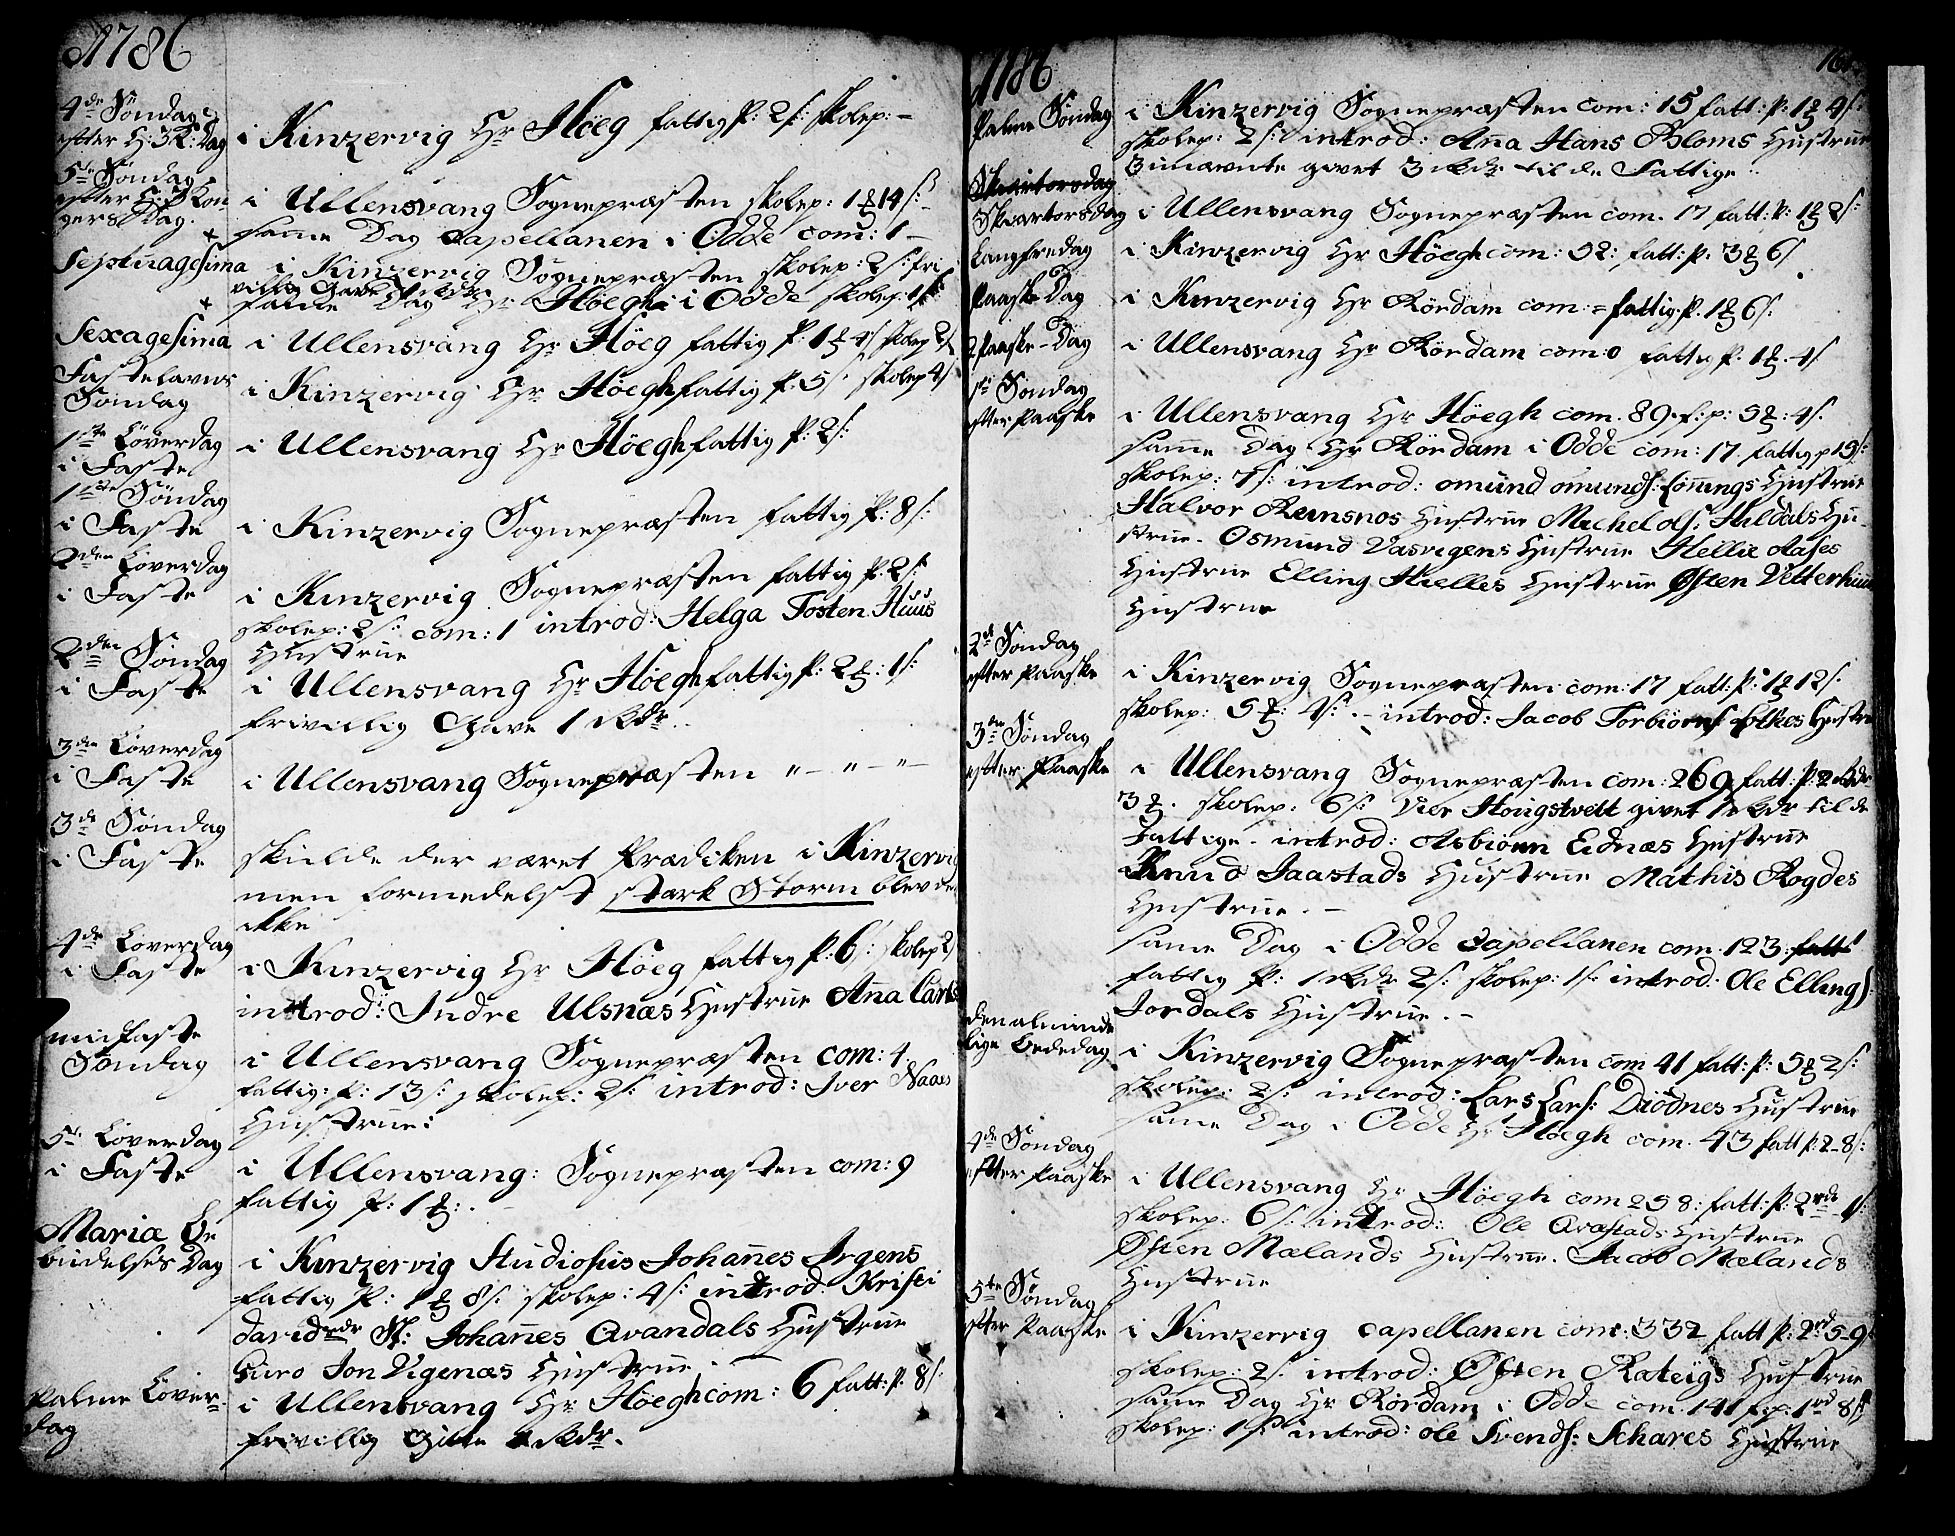 1786
4de Søndag
efter H: 3K: Dag
i Kinzervig Hr Høeg fattig P: 2 s: skolep: –
5te Søndag
efter H: 3 Kon-
gers Dag.
i Ullensvang Sognepræsten skolep: 1 14 s:
samme Dag Capellanen i Odde com: 1 –
Septuagesima
i Kinzervig Sognepræsten skolep: 2 s: fri
villig Gave
samme Dag Hr Høegh i Odde skolep: 1 s:
Sexagesima
i Ullensvang Hr Høeg fattig P: 1 4 s skolep 2 s
Fastelavns
Søndag
i Kinzervig Hr Høegh fattig P: 5 s: skolep 4 s
1ste Løverdag
i Faste
i Ullensvang Hr Høegh fattig P: 2 s:
1ste Søndag
i Faste
i Kinzervig Sognepræsten fattig P: 8 s:
2den Løverdag
i Faste
i Kinzervig Sognepræsten fattig P: 2 s:
skolep: 2 s: com: 1 introd: Helga Tosten Huus
Hustrue
2den Søndag
i Faste
i Ullensvang Hr Høegh fattig P: 2 : 1 s:
frivillig Gave 1 Rdr.
3die Løverdag
i Faste
i Ullensvang Sognepræsten " – " – " –
3de Søndag
i Faste
skulde der været Prædiken i Kinzervig
men formedelst stark Storm blev de
ikke
4de Løverdag
i Faste
i Kinzervig Hr Høeg fattig P: 6 s: skolep 2 s
introd: Indre Ulsnæs Hustrue Ana Carls
midfaste
Søndag
i Ullensvang Sognepræsten com: 4.
fattig: P: 13 s: skolep: 2 s: introd: Iver Naaes
Hustrue:
5te Løverdag
i Faste
i Ullensvang: Sognepræsten com: 9
fattig P: 1 :.
Mariæ Be
budelses Dag
i Kinzervig Studiosus Johanes Irgens
fattig P: 1 8 s: skolep: 4 s: introd: Kristi
Johanes Qvandals Hustrue
Guro Jon Vigenæs Hustrue
Palme Løver-
dag
i Ullensvang Hr Høegh com: 6 fatt: P. 8 s:
frivillig Rdr.
1786
Palme Søndag
i Kinzervig Sognepræsten com: 15 fatt: P: 1 4 s:
skolep: 2 s: introd: Ana Hans Bloms Hustrue
givet 3 Rdr til de Fattige.
Skiærtorsdag
Skiærtorsdag
i Ullensvang Sognepræsten com. 17 fatt: P: 1 2 s:
Langfredag
i Kinzervig Hr Høegh com: 52: fatt: P. 3 6 s
Paaske Dag
i Kinzervig Hr Rördam com: = fattig. P. 1 6 s.
2 Paaske-Dag
i Ullensvang Hr Rördam com: 0 fattig P. 1 . 4 s
1ste Søndag
efter Paaske
i Ullensvang Hr Høegh com. 89. f: p: 5 : 4 s.
samme Dag Hr Rördam i Odde com: 17. fattig p 15 s:
skolep: 7 s: introd: omund omunds: Hustrue
Halvor Reinsnos Hustrue Michel ols: Hildals Hu-
strue. Osmund Vasvigens Hustrue Hellie Aases
Hustrue Elling Hielles Hustrue Østen Vetterhuus
Hustrue
2den Søndag
efter Paaske
i Kinzervig Sognepræsten com: 17 fatt: P: 1 12 s.
skolep: 5 : 4 s: – introd: Jacob Torbiörns folkes Hustrue
3die Søndag
efter Paaske
i Ullensvang Sognepræsten com: 269 fatt: P: 2 Rdr
3 . skolep: 6 s: Hougstvett givet 1 Rdr til de
Fattige. introd: Asbiørn Eidnæs Hustrue
Knud Jaastads Hustrue Mathis Rogdes
Hustrue. –
same Dag i Odde Capellanen com. 123. fatt
fattig P: 1 Rdr 2 s: skolep: 1 s: introd: Ole Ellings
Jordals Hustrue. –
den alminde
lige Bededag
i Kinzervig Sognepræsten com 41 fatt: P: 5 2 s:
skolep: 2 s: introd: Lars Lars: Diödnes Hustrue
same Dag i Odde Hr Høegh com. 43 fatt p: 2 – 8 s:
4de Søndag
efter Paaske
i Ullensvang Hr Høegh com 258: fatt: P: 2 rdr
skolep: 6 s: introd: Ole Hustrue
Østen Mælands Hustrue. Jacob Mælands
Hustrue
5te Søndag
efter Paaske
i Kinzervig Capellanen com: 332 fatt P: 2 rd 5 – 9 s
skolep: 2 s: introd: Østen Rateigs Hustrue
same Dag Hr Rördam i Odde com. 141 f: p: 1 rd 8 s
skolep: 1 s: introd: ole Svends: Schares Hustrue